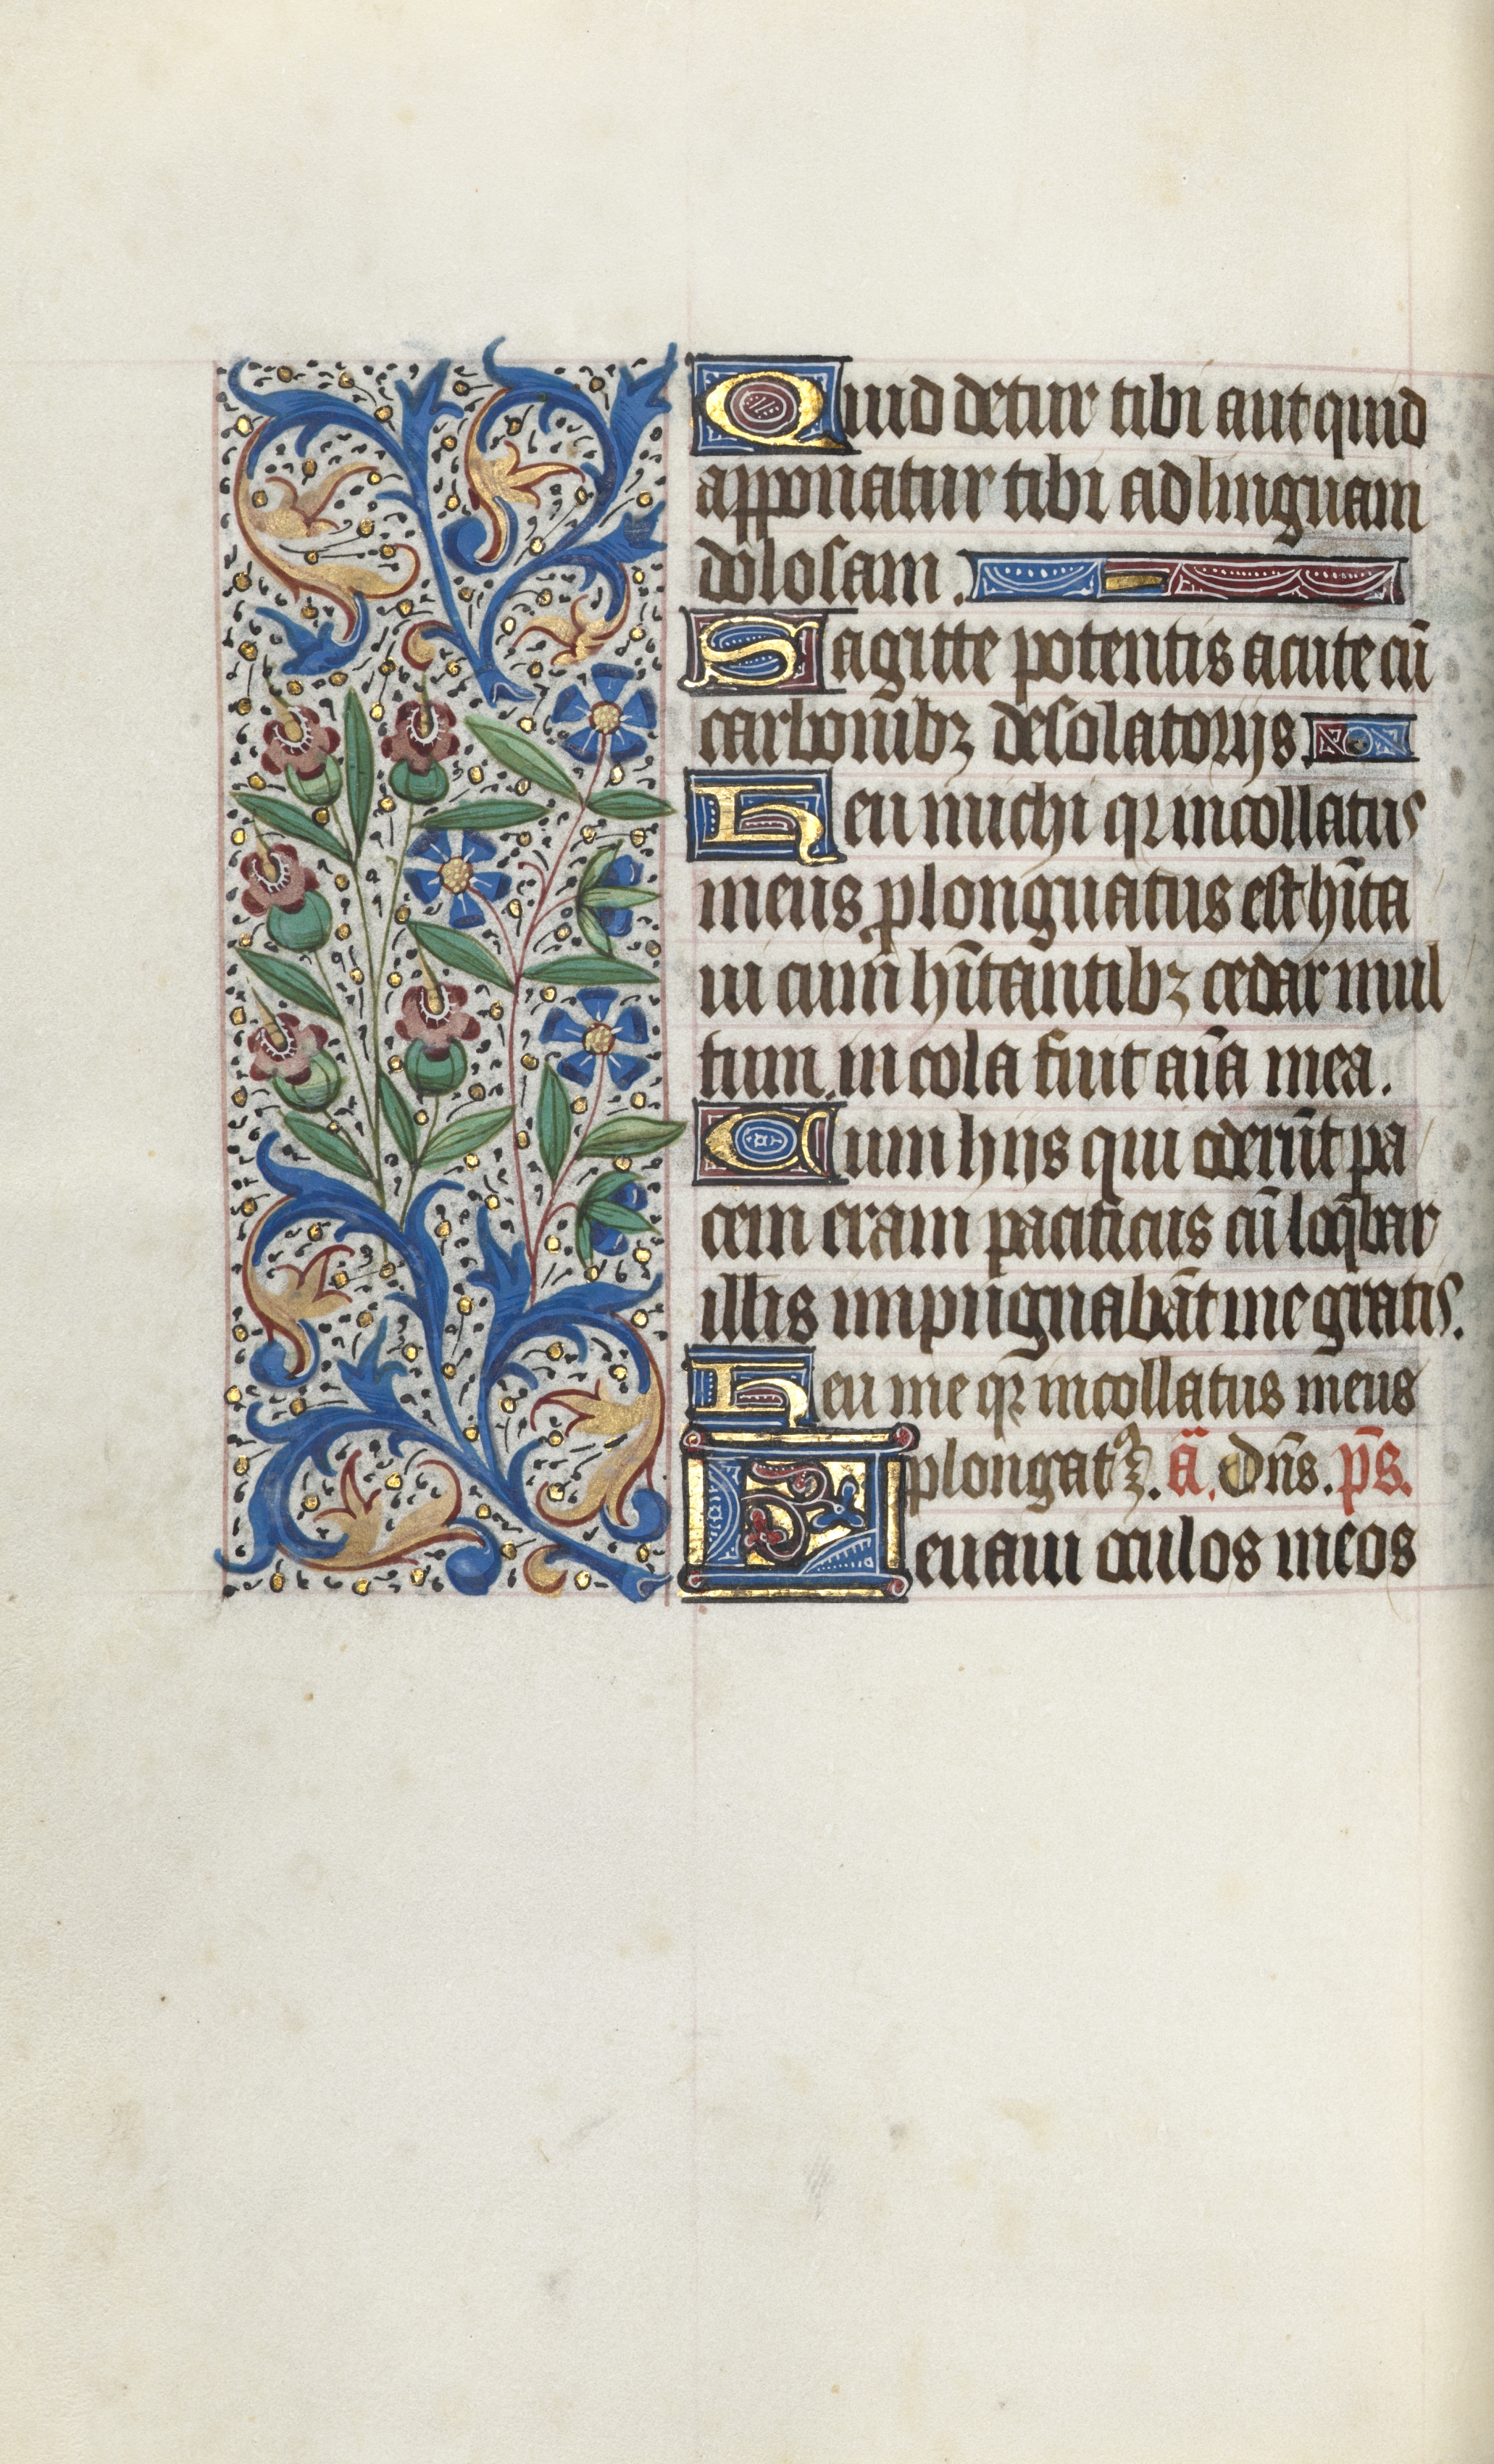 Quid detur tibi aut quid
apponatur tibi ad linguam
dolosam.
Sagitte potentis acute cū
carbonibꝫ desolatorijs.
Heu michi qꝛ incollatus
meus ꝓlonguatus est hītā
ui cum hītantibꝫ cedar mul
tum incola fuit aīa mea.
Cum hijs qui oderūt pa
cem eram pacificus cū loq̄bar
illis impugnabāt me gratis.
Heu me qꝛ incollatus meus
plongatꝰ ꝫ. ā. Dn̄s. p̄s.
Leuaui oculos meos